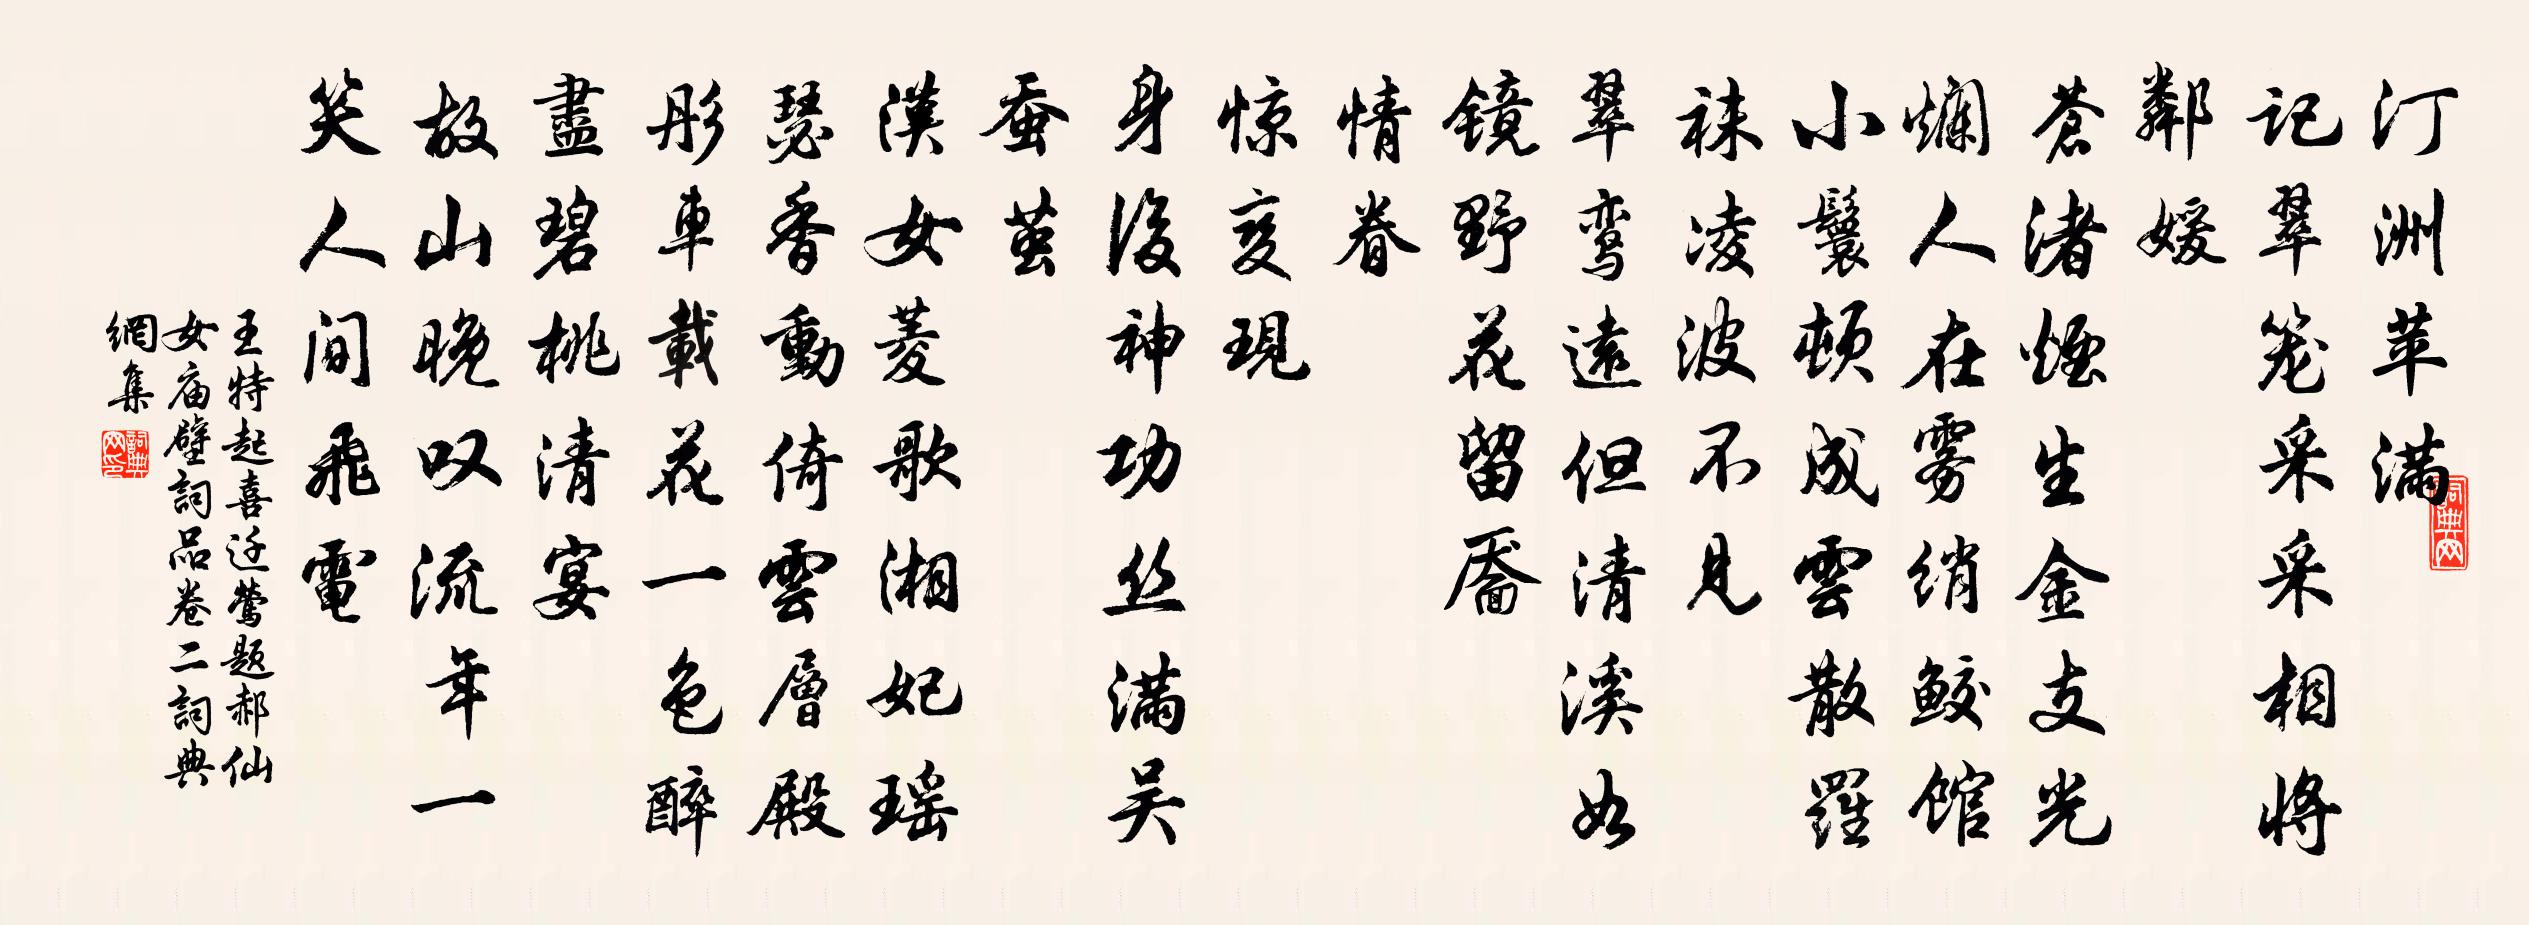 汀洲苹满
记翠笼采采相将
鄰媛
苍渚烟生金支光
爛人在雾绡鲛馆
小鬟顿成雲散羅
袜凌波不见
翠鸾遠但清溪如
镜野花留靨
情眷
惊变現
身後神功丝满吴
蚕茧
漢女菱歌湘妃瑶
瑟香動倚雲層殿
彤車載花一色醉
盡碧桃清宴
故山晚叹流年一
笑人间飛電
王特起喜迁莺题郝仙
女庙壁詞品卷二詞典
網集